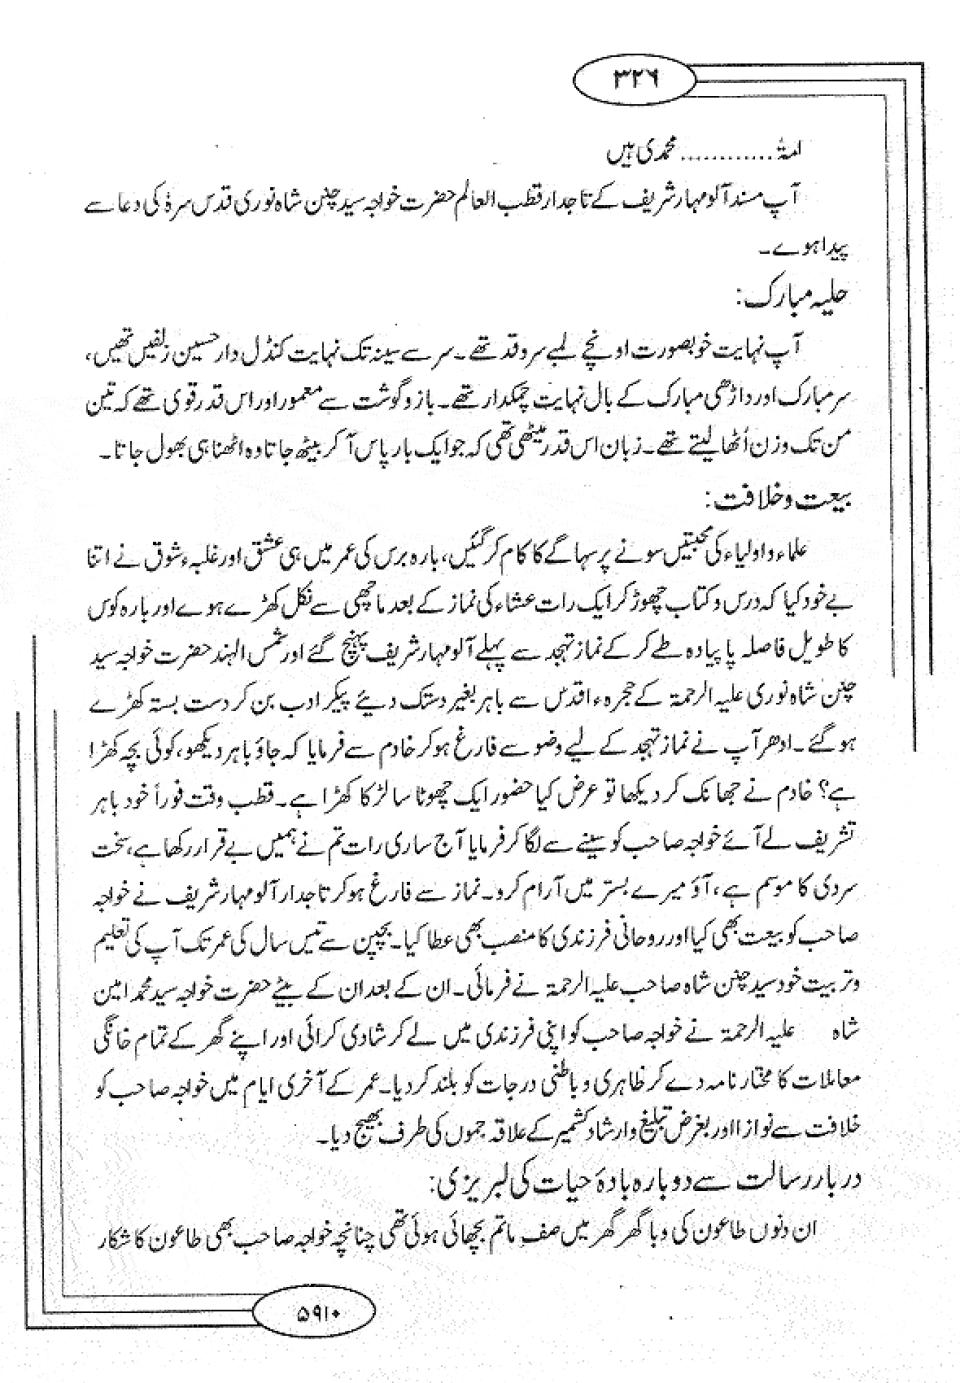 ۳۲۶
امۃ............ محمدی ہیں
آپ مسند آلو مہار شریف کے تاجدار قطب العالم حضرت خواجہ سید چنن شاہ نوری قدس سرہٗ کی دعا سے
پیدا ہوے۔
حلیہ مبارک:
آپ نہایت خوبصورت اونچے لمبے سرو قد تھے۔ سر سے سینہ تک نہایت کنڈل دار حسین زلفیں تھیں،
سر مبارک اور داڑھی مبارک کے بال نہایت چمکدار تھے۔ بازو گوشت سے معمور اور اس قدر قوی تھے کہ تین
من تک وزن اُٹھا لیتے تھے۔ زبان اس قدر میٹھی تھی کہ جو ایک بار پاس آ کر بیٹھ جاتا وہ اٹھنا ہی بھول جاتا۔
بیعت و خلافت:
علماء و اولیاء کی محبتیں سونے پر سہاگے کا کام کر گئیں، بارہ برس کی عمر میں ہی عشق اور غلبہء شوق نے اتنا
بے خود کیا کہ درس و کتاب چھوڑ کر ایک رات عشاء کی نماز کے بعد ماچھی سے نکل کھڑے ہوے اور بارہ کوس
کا طویل فاصلہ پا پیادہ طے کر کے نماز تہجد سے پہلے آلو مہار شریف پہنچ گئے اور شمس الہند حضرت خواجہ سید
چنن شاہ نوری علیہ الرحمۃ کے حجرہء اقدس سے باہر بغیر دستک دیئے پیکر ادب بن کر دست بستہ کھڑے
ہو گئے۔ ادھر آپ نے نماز تہجد کے لیے وضو سے فارغ ہو کر خادم سے فرمایا کہ جاؤ باہر دیکھو، کوئی بچہ کھڑا
ہے؟ خادم نے جھانک کر دیکھا تو عرض کیا حضور ایک چھوٹا سا لڑکا کھڑا ہے۔ قطب وقت فوراً خود باہر
تشریف لے آئے خواجہ صاحب کو سینے سے لگا کر فرمایا آج ساری رات تم نے ہمیں بے قرار رکھا ہے، سخت
سردی کا موسم ہے، آؤ میرے بستر میں آرام کرو۔ نماز سے فارغ ہو کر تاجدار آلو مہار شریف نے خواجہ
صاحب کو بیعت بھی کیا اور روحانی فرزندی کا منصب بھی عطا کیا۔ بچپن سے تیس سال کی عمر تک آپ کی تعلیم
و تربیت خود سید چنن شاہ صاحب علیہ الرحمۃ نے فرمائی۔ ان کے بعد ان کے بیٹے حضرت خواجہ سید محمد امین
شاہ علیہ الرحمۃ نے خواجہ صاحب کو اپنی فرزندی میں لے کر شادی کرائی اور اپنے گھر کے تمام خانگی
معاملات کا مختار نامہ دے کر ظاہری و باطنی درجات کو بلند کر دیا۔ عمر کے آخری ایام میں خواجہ صاحب کو
خلافت سے نوازا اور بغرض تبلیغ و ارشاد کشمیر کے علاقہ جموں کی طرف بھیج دیا۔
دربار رسالت سے دوبارہ بادۂ حیات کی لبریزی:
ان دنوں طاعون کی وبا گھر گھر میں صفِ ماتم بچھائی ہوئی تھی چنانچہ خواجہ صاحب بھی طاعون کا شکار
۵۹۱۰